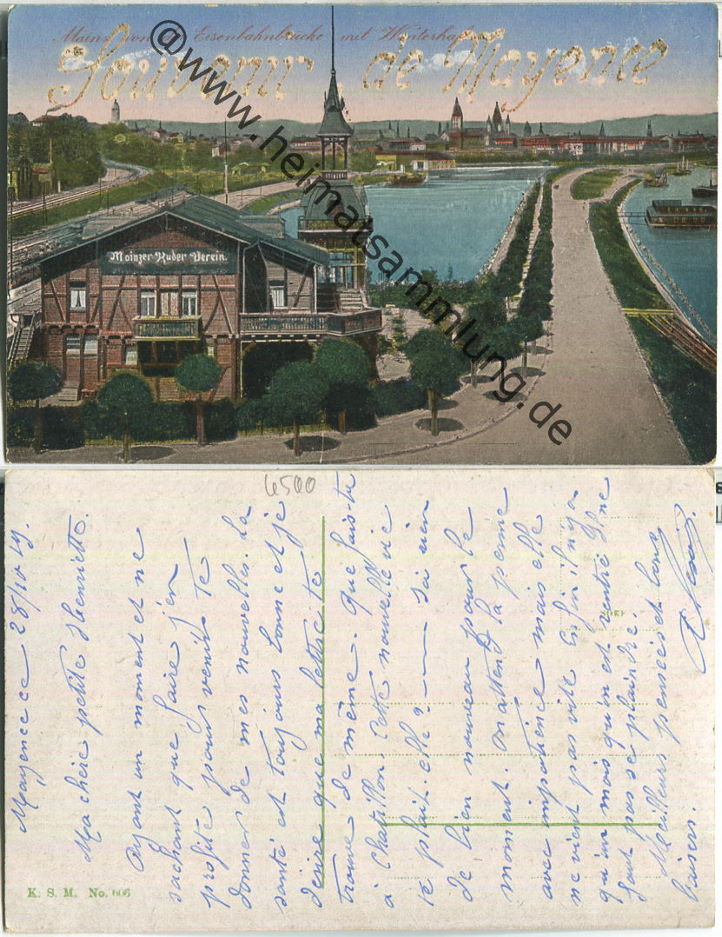 Mainz von der Eisenbahnbrücke mit Winterhafen
Souvenir de Mayence
@www.heimatsammlung.de
Mainzer Ruder Verein.
6500
Mayence ce 28/10 19.
Ma chère petite Henriette.
Ayant un moment et ne
sachant que faire j'en
profite pour venir te
donner de mes nouvelles. La
santé est toujours bonne et je
désire que ma lettre te
trouve de même. Que fais-tu
à Chatillon. Cette nouvelle vie
te plait-elle? Ici rien
de bien nouveau pour le
moment. On attend la penne
avec impatience mais elle
ne vient pas vite. Enfin il n'y a
qu'un mois qu'on est rentré. Il ne
faut pas se plaindre.
Meilleurs pensées et bons
baisers.
K. S. M. No. 606